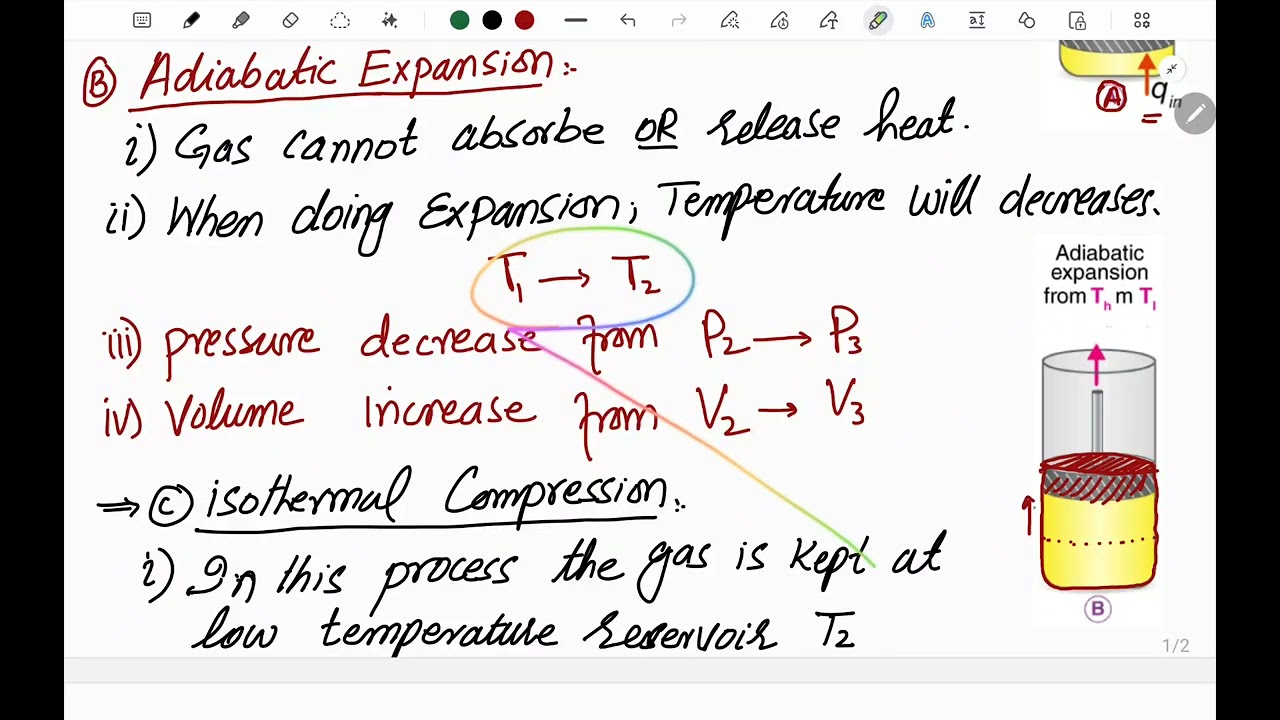 Ⓑ Adiabatic Expansion:-
i) Gas cannot absorbe OR release heat.
ii) When doing Expansion, Temperature will decreases.
T₁ → T₂
iii) Pressure decrease from P₂ → P₃
iv) Volume increase from V₂ → V₃
⇒ Ⓒ isothermal Compression:-
i) In this process the gas is kept at
low temperature reservoir T₂
Ⓐ q in
Adiabatic
expansion
from Th m Tl
Ⓑ
1/2